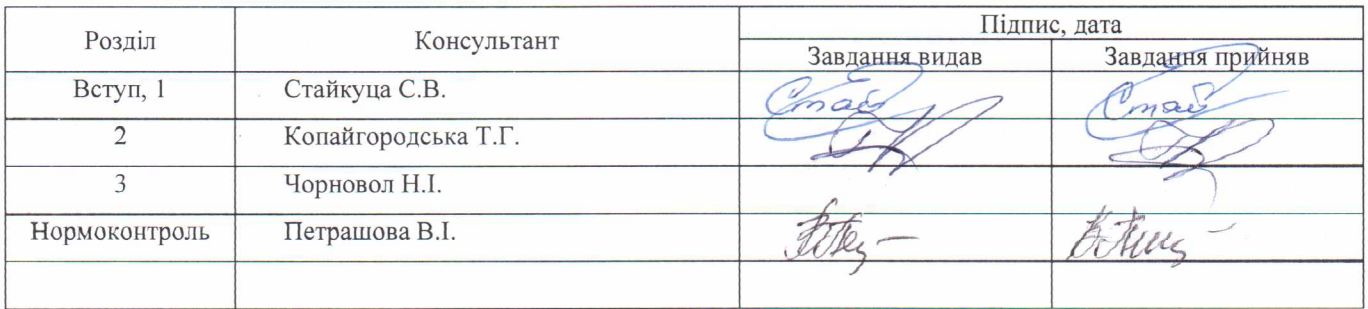 Розділ Консультант Підпис, дата
Завдання видав Завдання прийняв
Вступ, 1 Стайкуца С.В. Стай Стай
2 Копайгородська Т.Г.
3 Чорновол Н.І.
Нормоконтроль Петрашова В.І.